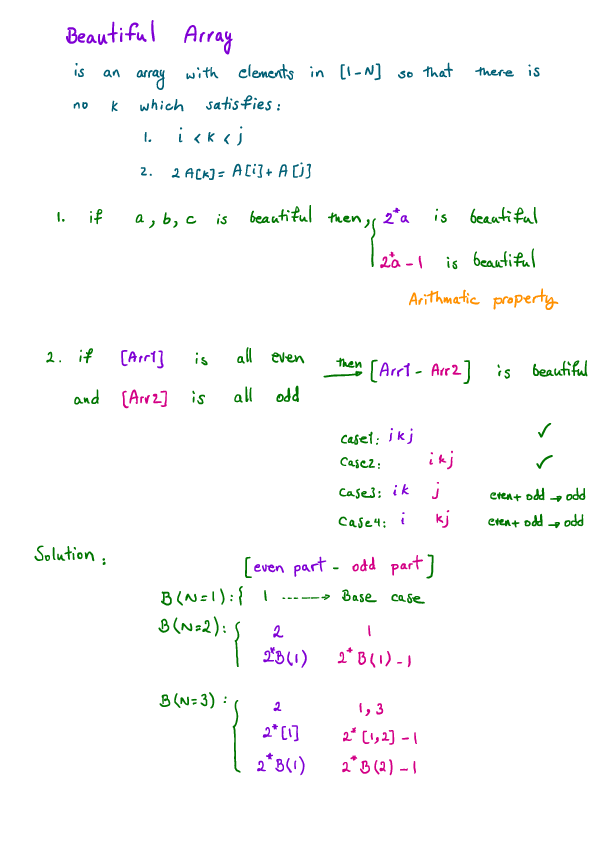 Beautiful Array
is an array with elements in [1-N] so that there is
no k which satisfies:
1. i < k < j
2. 2A[k] = A[i] + A[j]
1. if a, b, c is beautiful then, { 2*a is beautiful
2*a - 1 is beautiful
Arithmatic property
2. if [Arr1] is all even then → [Arr1 - Arr2] is beautiful
and [Arr2] is all odd
case1: i k j ✓
case2: i k j ✓
case3: i k j even + odd → odd
case4: i k j even + odd → odd
Solution:
[even part - odd part]
B(N=1): { 1 -----→ Base case
B(N=2): { 2 1
2*B(1) 2*B(1)-1
B(N=3): { 2 1,3
2*[1] 2*[1,2]-1
2*B(1) 2*B(2)-1